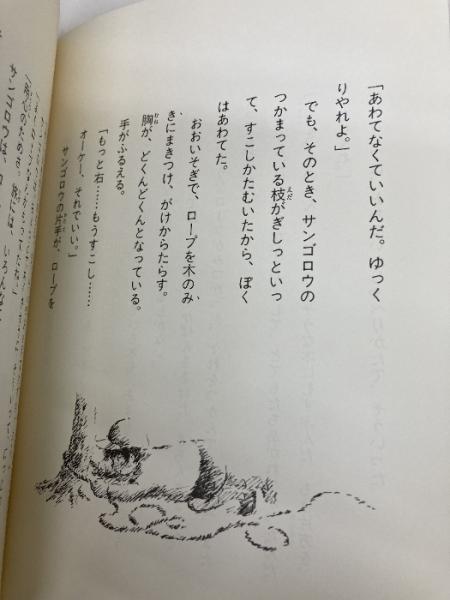 「あわてなくていいんだ。ゆっく
りやれよ。」
でも、そのとき、サンゴロウの
つかまっている枝がぎしっといっ
て、すこしかたむいたから、ぼく
はあわてた。
おおいそぎで、ロープを木のみ
きにまきつけ、がけからたらす。
胸が、どくんどくんとなっている。
手がふるえる。
「もっと右……もうすこし……
オーケー、それでいい。」
サンゴロウの片手が、ロープを